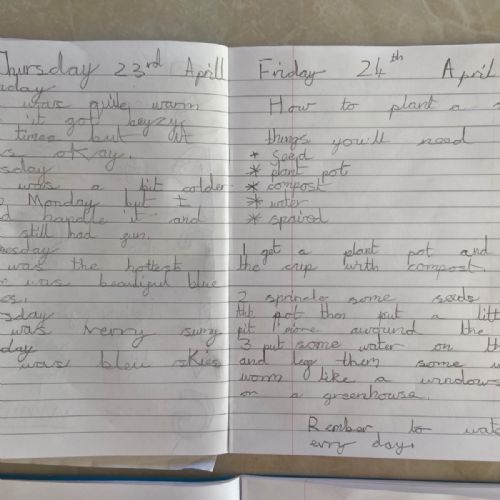 Thursday 23rd Aprill
was quite warm
it got beyzy
times but it
okay.
was a bit colder
Monday but I
handle it and
still had gun.
was the hottest
was beautiful blue
was verry suny
was bleu skies
Friday 24th April
How to plant a
things you'll need
* Seed
* plant pot
* compost
* water
* spairod
1 get a plant pot and
the cup with compost.
2 sprincle some seeds
the pot then put a litt
bit more awound the
3 put some water on th
and leg them some w
worm like a windows
or a greenhouse.
Rember to wat
evry day.